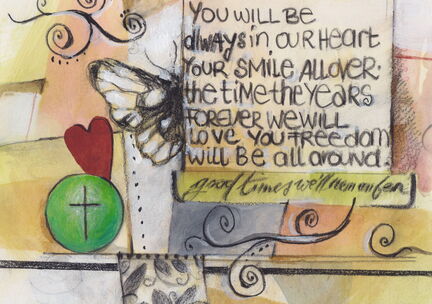 YOU WILL BE
always in OUR HearT
YOUR SMILE ALLOVER.
the time the years
FOREVER WE WILL
LOVE YOU FreeDOM
WILL BE all around.
good times we'll remember